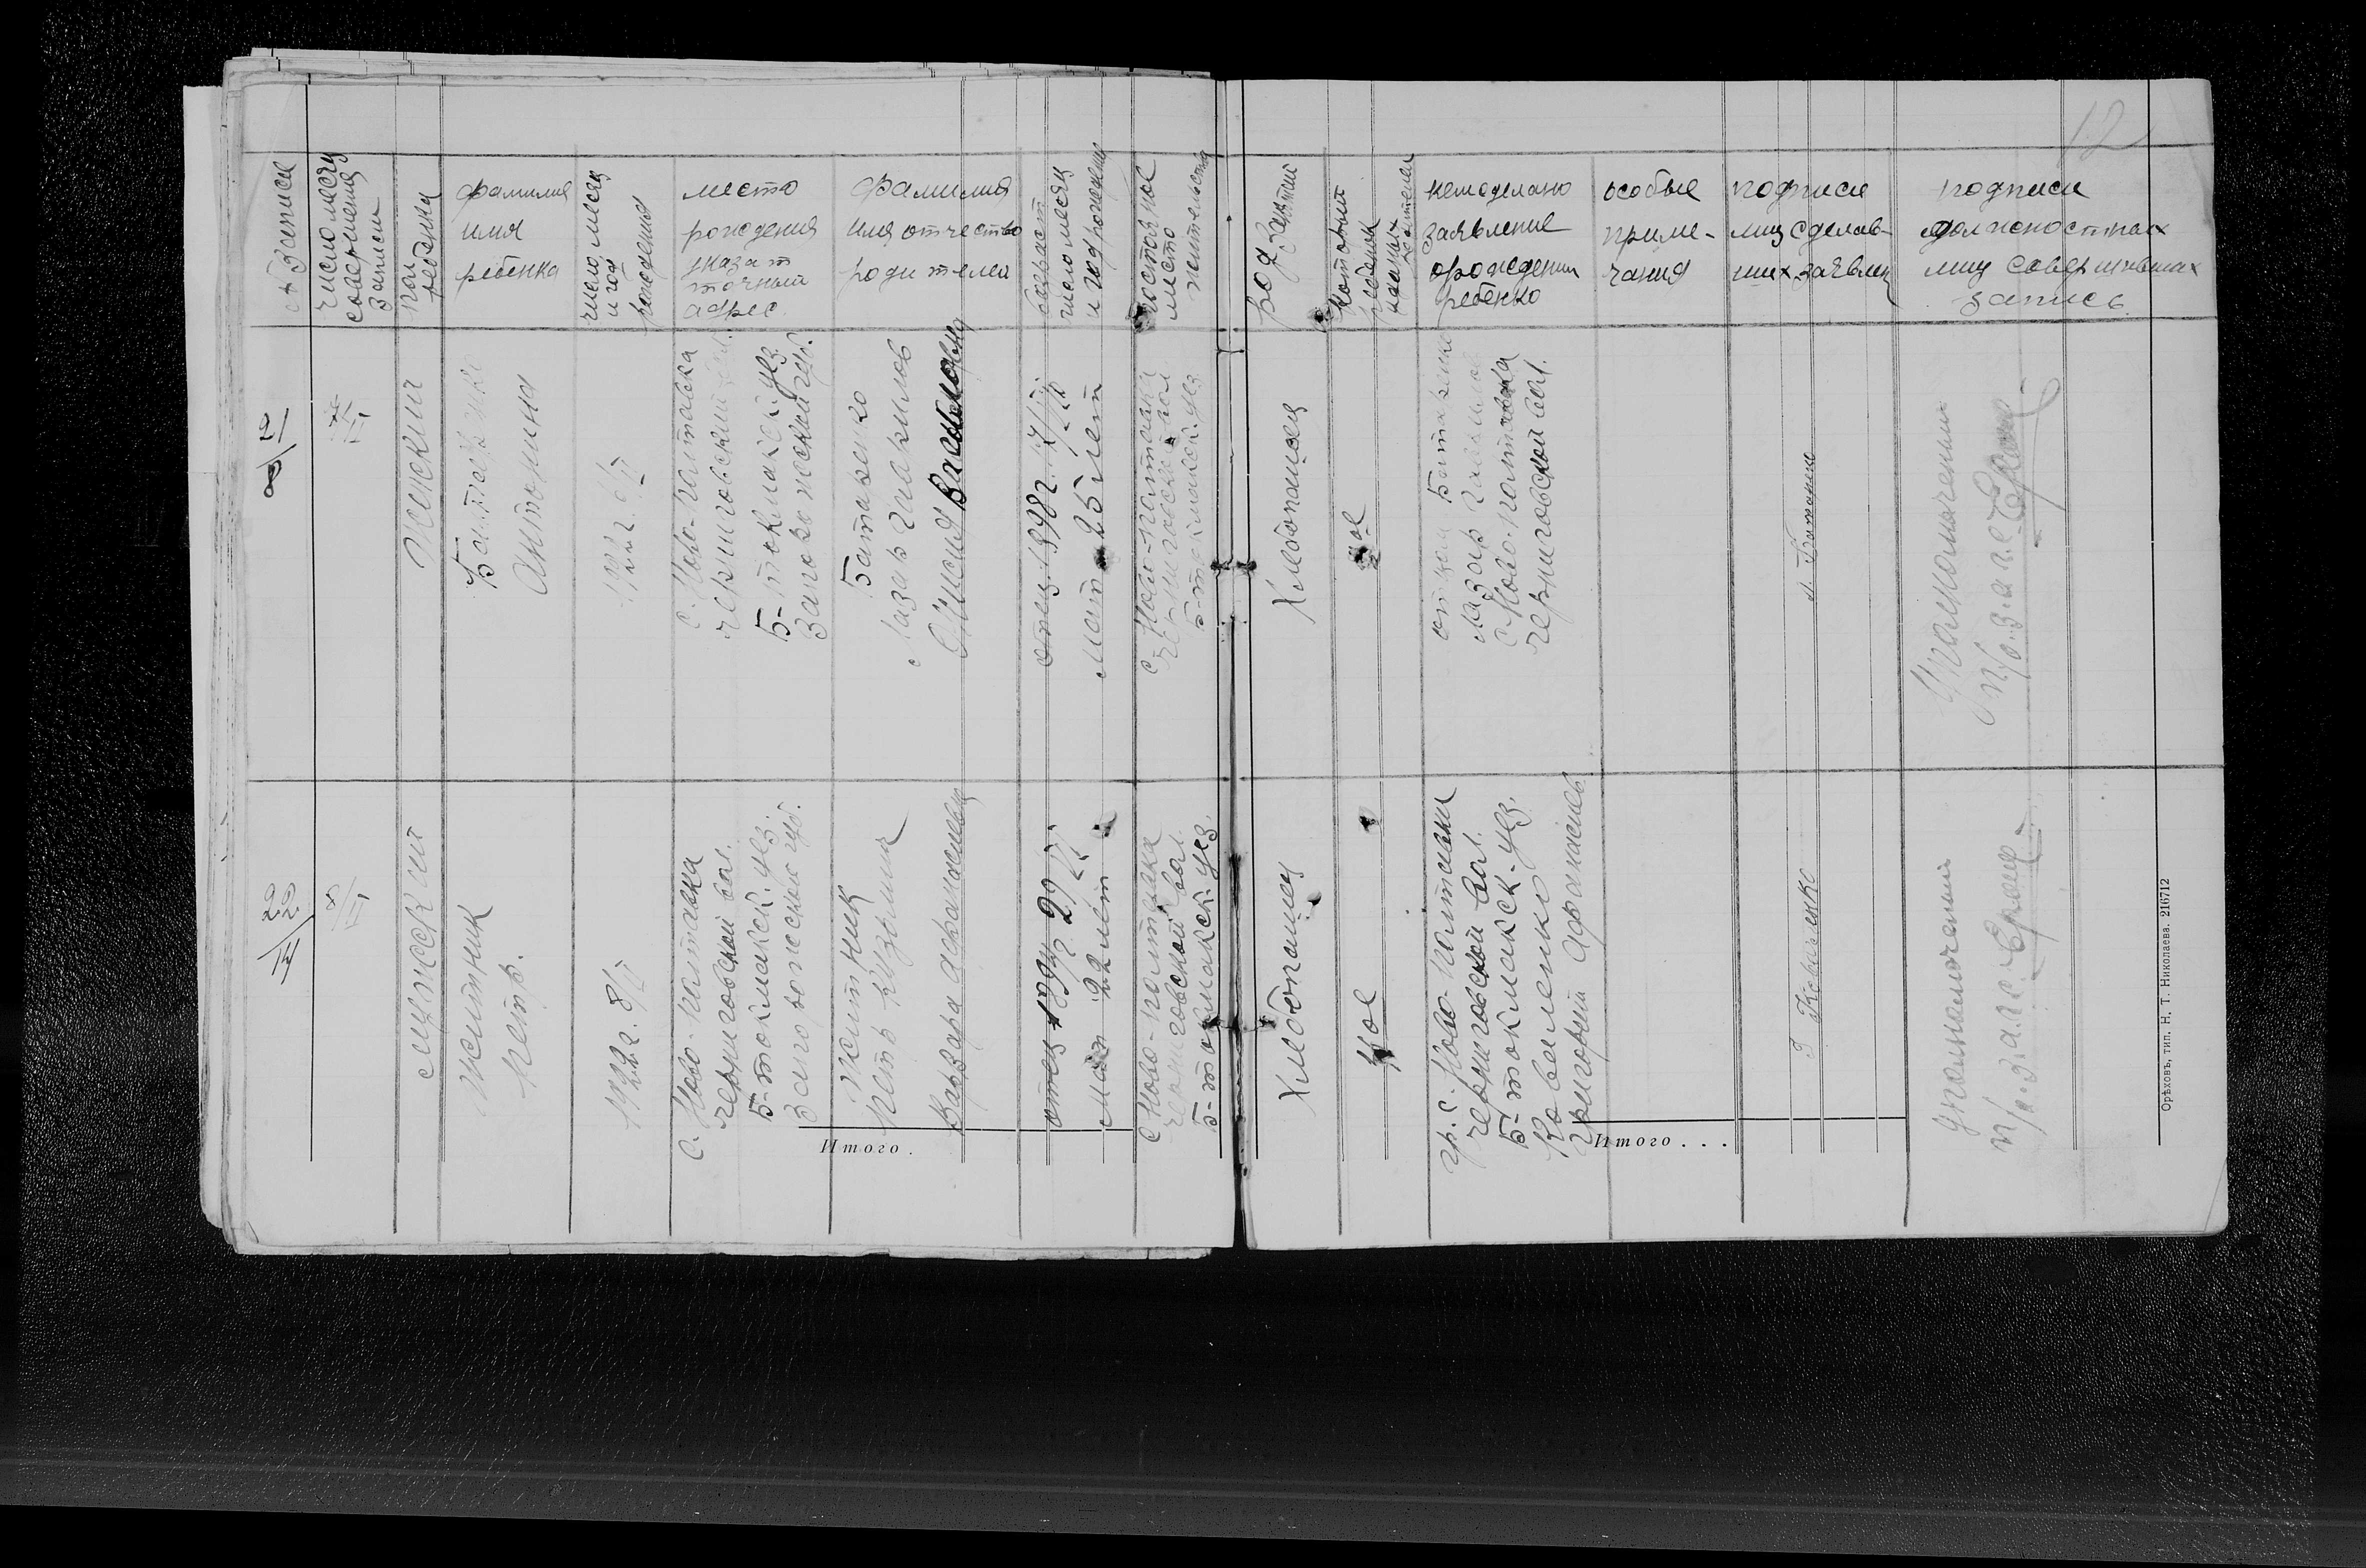 12
№ записи
число месяц
совершения
записи
пол
ребенка
фамилия
имя
ребенка
число, месяц
и год
рождения
место
рождения
указат
точный
адрес
фамилия
имя отчество
родителей
возраст
число месяц
и год рождения
постоянное
место
жительство
род занятий
который
ребенок
кем сделано
заявление
о рождении
ребенка
особые
приме-
чания
подписи
лиц сделав-
ших заявлен
подписи
должностных
лиц совершивших
запись
21
8
женский
Батаренко
Антонина
1922 г. 6/II
с. Ново-Полтавка
черниговский вол.
Б-токмакск. уез.
Запорожской губ.
Батаренко
Лазар Гаврилов
Анисия
отец 1898 г.
мат 25 лет
с. Ново-Полтавка
черниговской вол
Б-токмакск. уез
Хлебопашец
2ое
отцом Батаренко
Лазар Гаврилов
с. Ново-Полтавка
черниговской вол.
Л. Батаренко
Уполномоченный
п/о. з.а.г.с.
22
14
мужской
Житник
Петр.
1922 г. 8/II
с. Ново-Полтавка
черниговской вол.
Б-токмакск. уез.
Запорожской губ.
Житник
Петр
Варвара Афанасиевна
отец 1894 г. 29/VI
мат 22 лет
с. Ново-Полтавка
черниговской вол.
Б-токмакск. уез.
Хлебопашец
1ое
гр. с. Ново-Полтавки
черниговской вол.
Б-токмакск. уез.
Коваленко
Григорий Афанасиев
Г Коваленко
Уполномоченный
п/о. з.а.г.с.
Итого .
Итого . . .
Орѣховъ, тип. Н. Т. Николаева. 216712